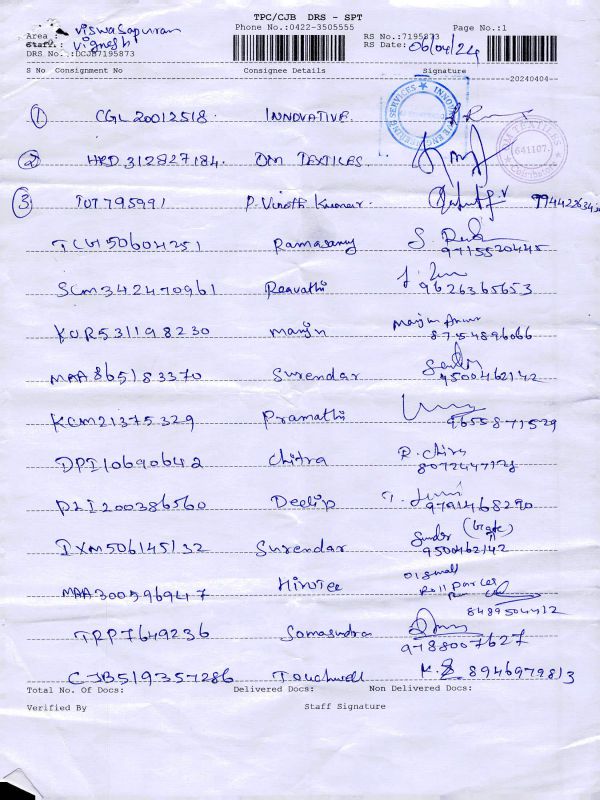 TPC/CJB DRS - SPT
Area : Viswasapuram Phone No.:0422-3505555 RS No.:7195873 Page No.:1
Staff.: Vignesh RS Date: 06/04/24
DRS No.:DCJB7195873
S No Consignment No Consignee Details Signature
20240404
① CGL 20012518. INNOVATIVE.
② HRD 312827184. OM TEXTILES. OM TEXTILES 641107. Coimbatore
③ TUT795991 P. Vinoth Kumar.
Ramasamy S. 9715520445
SCM342470961 Revathi 9626365653
KUR531198230 Manju 8754896066
MAA865183370 Surendar 9500462142
KCM21375329 Pramathi 9655871529
DPI10690642 Chitra R. Chitra 8072447128
PLI200386560 Deelip 9791468290
IXM506145132 Surendar 9500462142
MAA300596947 01 Small Roll Parcel 8489504412
TRP7649236 Somasundra 9788007627
CJB519357286 Touchwell 8946979813
Total No. Of Docs: Delivered Docs: Non Delivered Docs:
Verified By Staff Signature